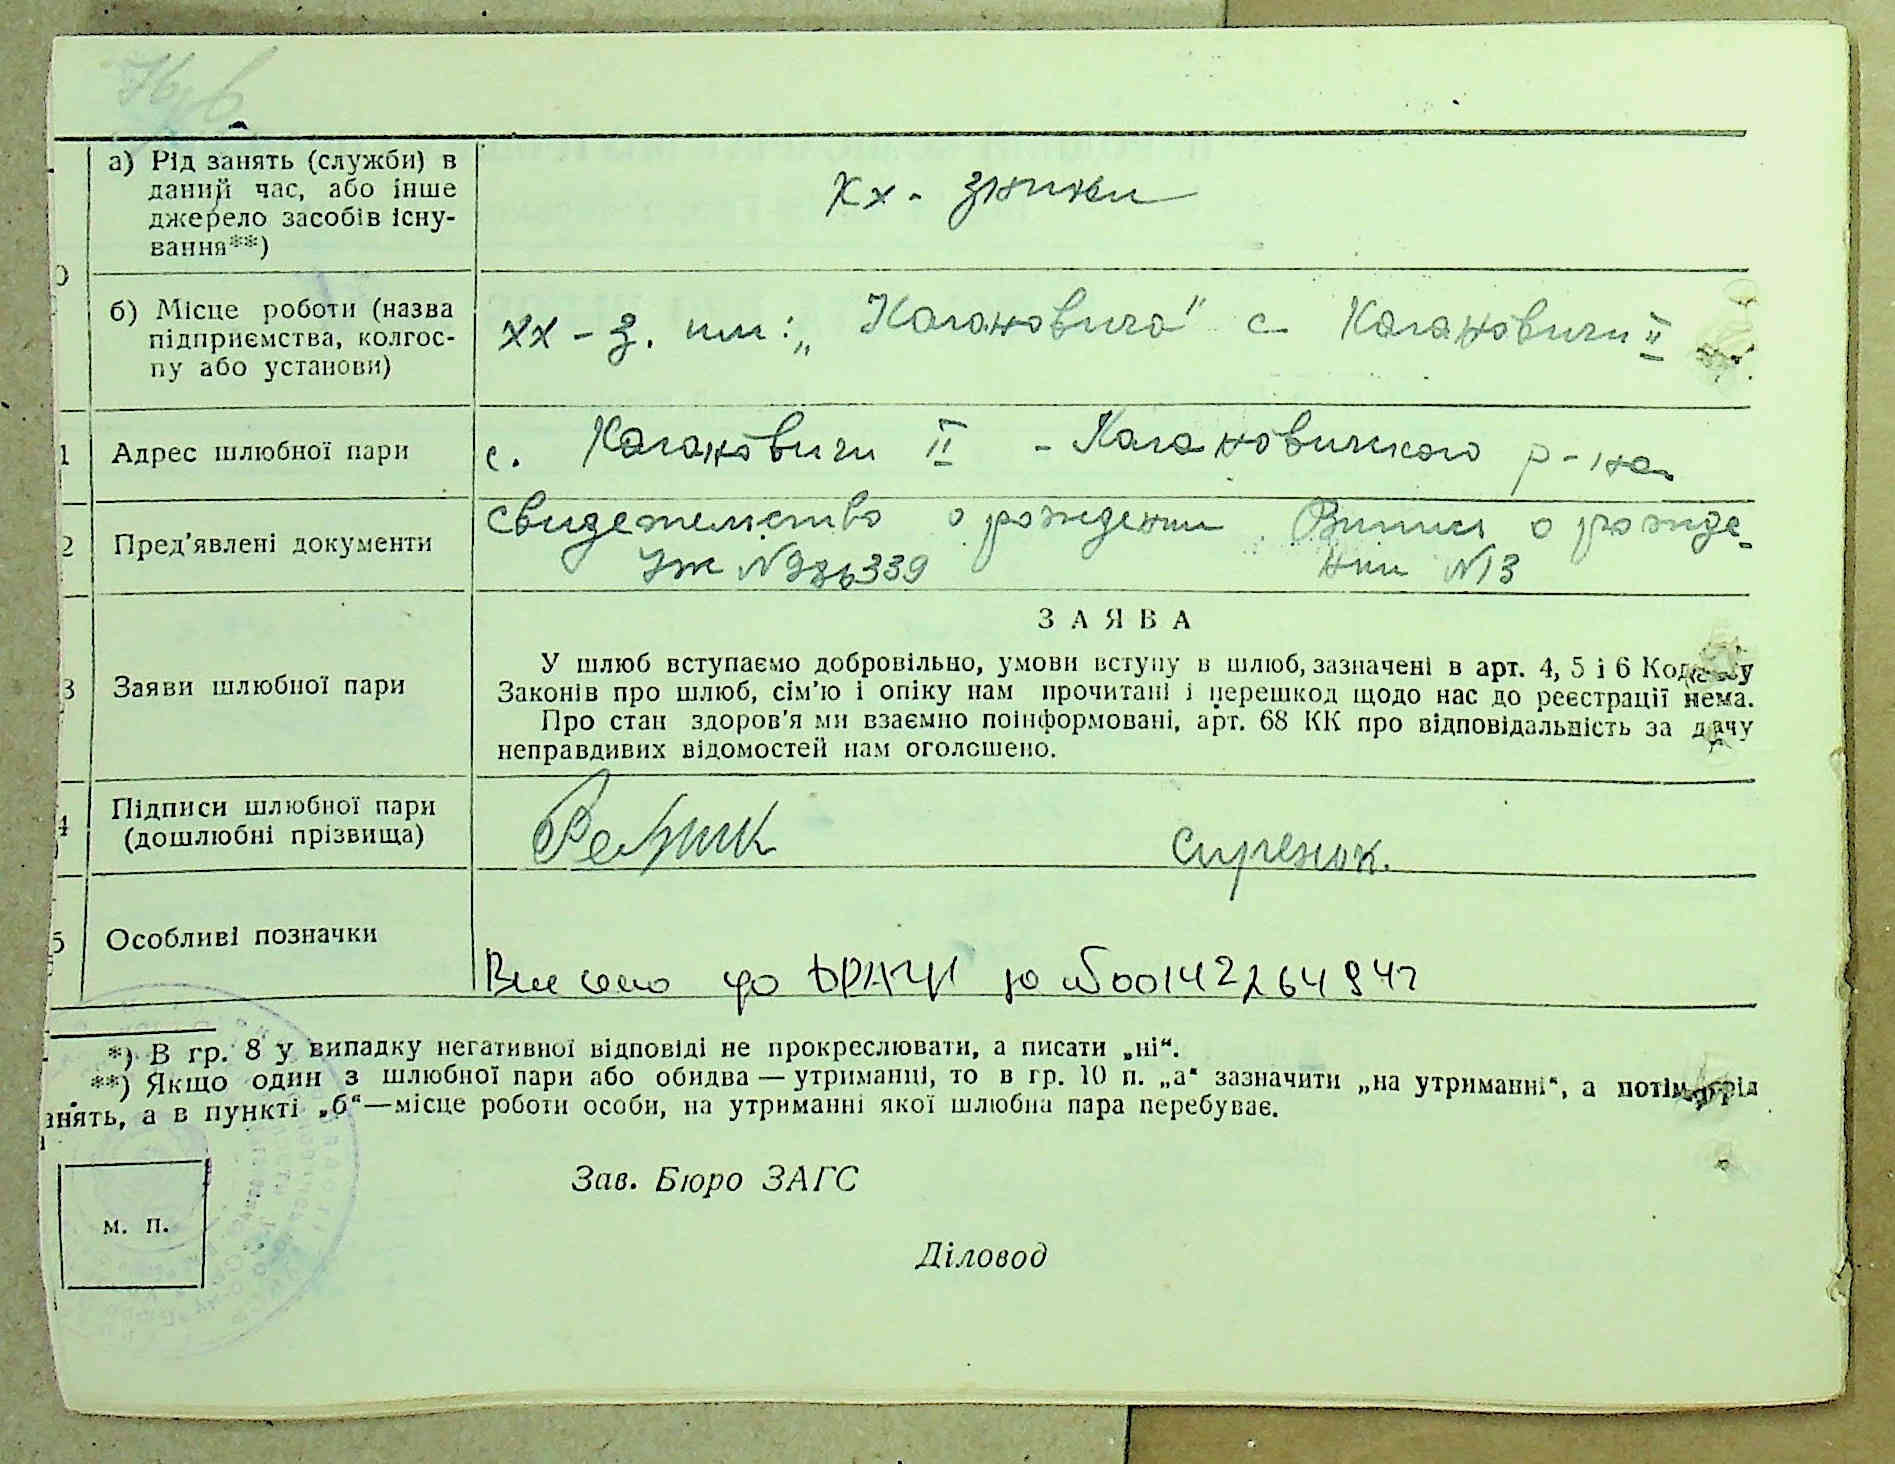 а) Рід занять (служби) в
даний час, або інше
джерело засобів існу-
вання**)
кх-зники
б) Місце роботи (назва
підприємства, колгос-
пу або установи)
кх-з. им: „Кагановича" с Кагановичи II
1 Адрес шлюбної пари
с. Кагановичи II - Кагановичского р-на.
2 Пред'явлені документи
Свидетельство о рождении Випись о рожде-
№ 339 нии №13
ЗАЯВА
3 Заяви шлюбної пари
У шлюб вступаємо добровільно, умови вступу в шлюб, зазначені в арт. 4, 5 і 6 Кодексу
Законів про шлюб, сім'ю і опіку нам прочитані і перешкод щодо нас до реєстрації нема.
Про стан здоров'я ми взаємно поінформовані, арт. 68 КК про відповідальність за дачу
неправдивих відомостей нам оголошено.
4 Підписи шлюбної пари
(дошлюбні прізвища)
Сиренок.
5 Особливі позначки
Внесено до ДРАЦС за №00142264947
*) В гр. 8 у випадку негативної відповіді не прокреслювати, а писати „ні“.
**) Якщо один з шлюбної пари або обидва — утриманці, то в гр. 10 п. „а“ зазначити „на утриманні“, а потім рід
анять, а в пункті „б“—місце роботи особи, на утриманні якої шлюбна пара перебуває.
Зав. Бюро ЗАГС
м. п.
Діловод